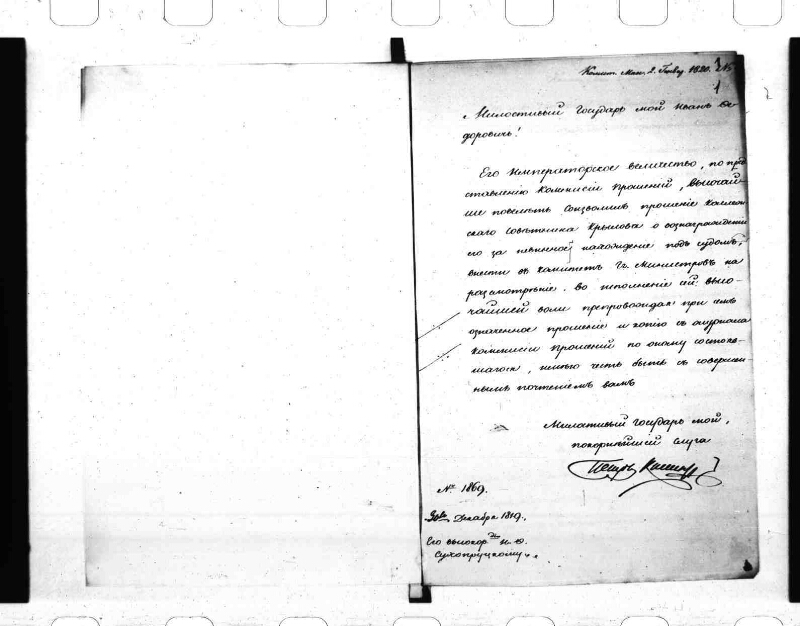 Комит. Мин. 2. Генв. 1820. №
1
Милостивый Государь мой Иванъ Ѳе-
доровичь!
Его Императорское величество, по пред-
ставленію Коммисіи прошеній, высочай-
ше повелѣть соизволилъ прошеніе Коллеж-
скаго Совѣтника Крылова о вознагражденіи
его за невинное нахожденіе подъ судомъ,
внести въ Комитетъ Гг. Министровъ на
разсмотрѣніе. Во исполненіе сей высо-
чайшей воли препровождая при семъ
означенное прошеніе и копію съ журнала
Коммисіи Прошеній по оному состояв-
шагося, имѣю честь быть съ совершен-
нымъ почтеніемъ вамъ
Милостивый Государь мой,
покорнѣйшій слуга
Петръ
№ 1869.
Декабря 1819.
Его высокор. И. Ѳ.
Сухопруцкому